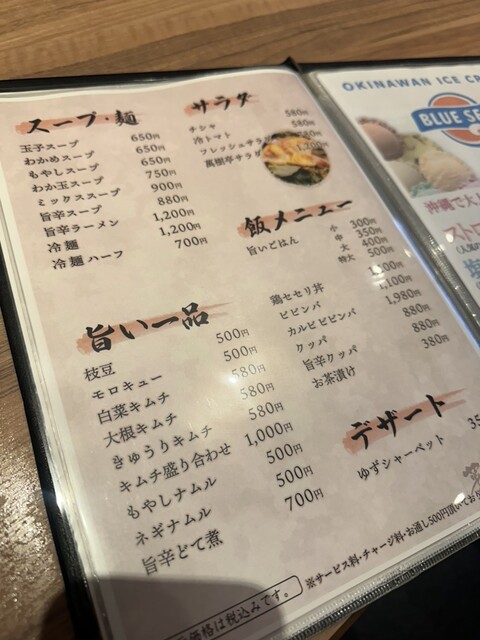 スープ・麺
玉子スープ 650円
わかめスープ 650円
もやしスープ 650円
わか玉スープ 750円
ミックススープ 900円
旨辛スープ 880円
旨辛ラーメン 1,200円
冷麺 1,200円
冷麺ハーフ 700円
サラダ
チシャ 580円
冷トマト 580円
フレッシュサラダ
萬樹亭サラダ
飯メニュー
旨いごはん
小 300円
中 350円
大 400円
特大 500円
鶏セセリ丼
ビビンバ 1,100円
カルビビビンバ 1,980円
クッパ 880円
旨辛クッパ 880円
お茶漬け 380円
旨い一品
枝豆 500円
モロキュー 500円
白菜キムチ 580円
大根キムチ 580円
きゅうりキムチ 580円
キムチ盛り合わせ 1,000円
もやしナムル 500円
ネギナムル 500円
旨辛どて煮 700円
デザート
ゆずシャーベット 35
※サービス料・チャージ料・お通し500円頂いてお
価格は税込みです。
OKINAWAN ICE CR
BLUE SE
沖縄で大人
ストロ